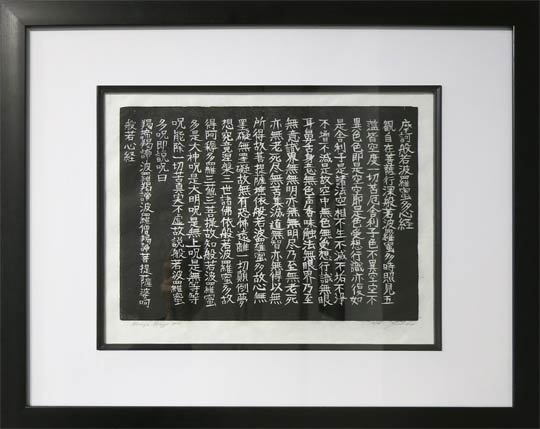 摩訶般若波羅蜜多心経
觀自在菩薩行深般若波羅蜜多時照見五
蘊皆空度一切苦厄舍利子色不異空空不
異色色即是空空即是色受想行識亦復如
是舍利子是諸法空相不生不滅不垢不淨
不増不減是故空中無色無受想行識無眼
耳鼻舌身意無色声香味触法無眼界乃至
無意識界無無明亦無無明尽乃至無老死
亦無老死尽無苦集滅道無智亦無得以無
所得故菩提薩埵依般若波羅蜜多故心無
罣礙無罣礙故無有恐怖遠離一切顛倒夢
想究竟涅槃三世諸佛依般若波羅蜜多故
得阿耨多羅三藐三菩提故知般若波羅蜜
多是大神呪是大明呪是無上呪是無等等
呪能除一切苦真実不虚故説般若波羅蜜
多呪即説呪曰
羯諦羯諦波羅羯諦波羅僧羯諦菩提薩婆訶
般若心経